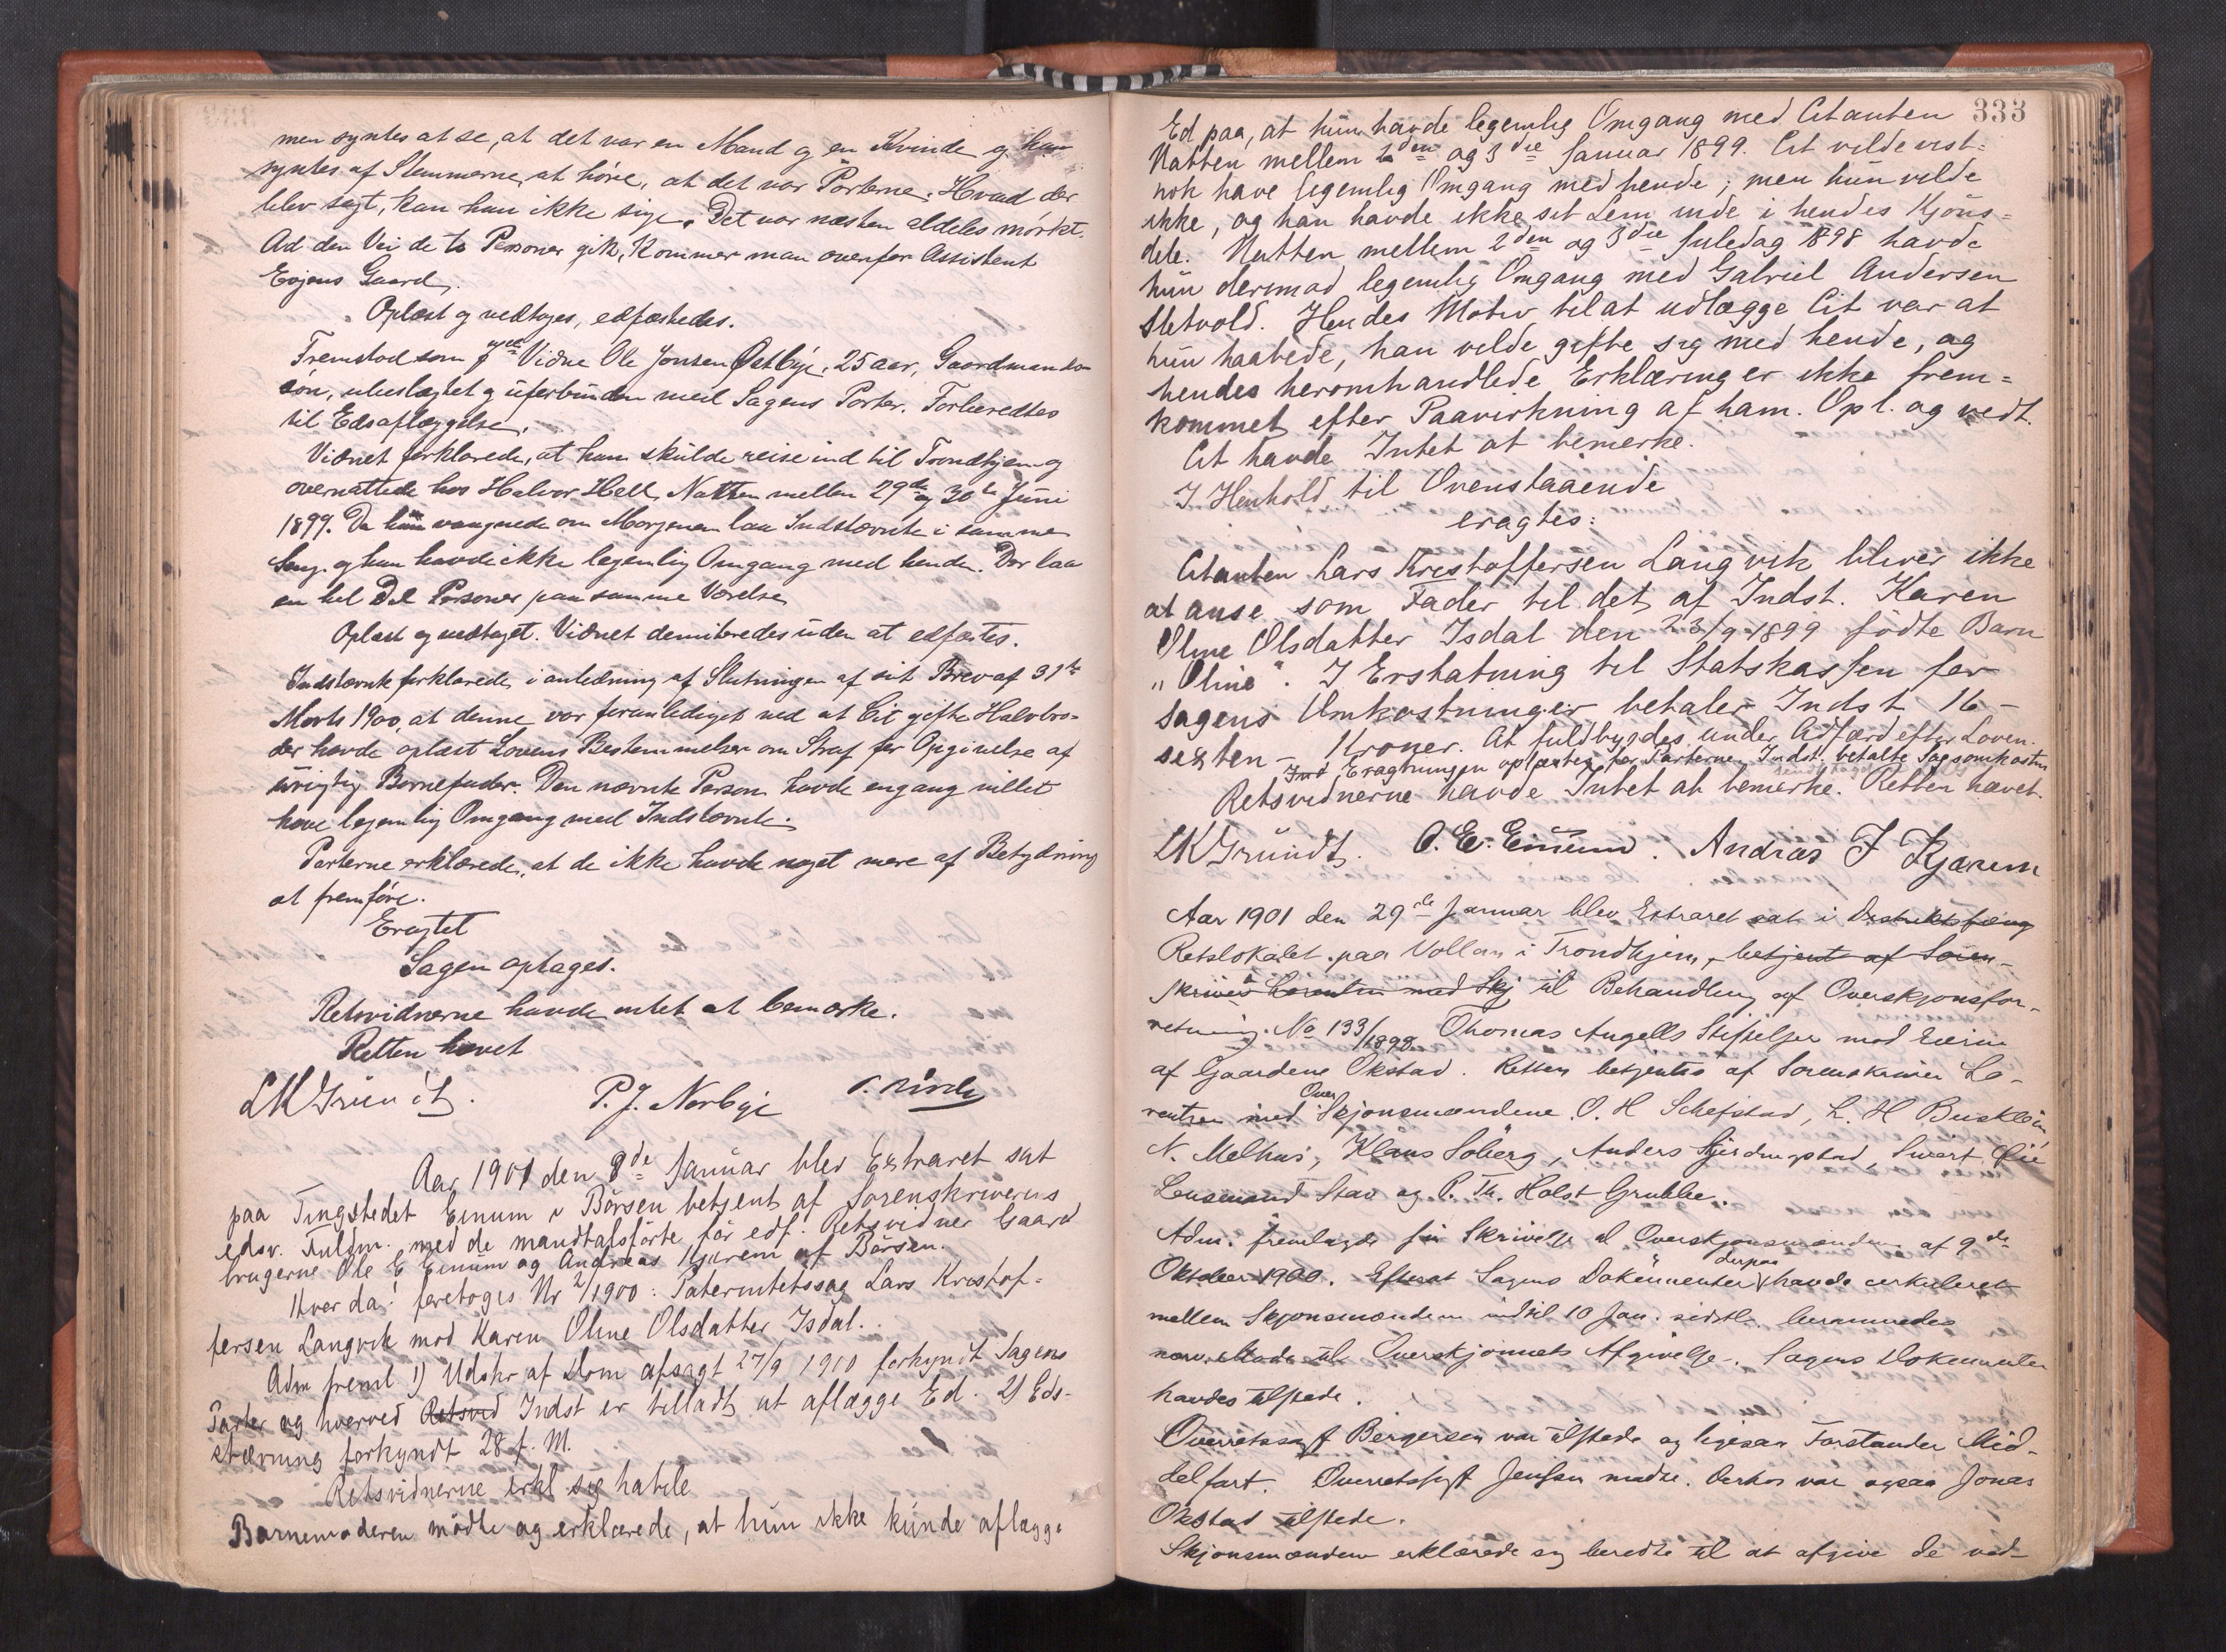 men syntes at se, at det var en Mand og en Kvinde og han
syntes af Stemmerne at höre, at det var Parterne. Hvad der
blev sagt, kan han ikke sige. Det var næsten aldeles mörkt.
Ad den Vei de to Personer gik, kommer man ovenfor Assistent
Gaard.
Oplæst og vedtoges, edfæstedes.
Fremstod som Vidne Ole Jonsen Östbye, 25 aar, Gaardmands-
sön, ubeslægtet og uforbunden med Sagens Parter. Forberedtes
til Edsaflæggelse.
Vidnet forklarede, at han skulde reise ind til Trondhjem og
overnattede hos Halvor Hell, Natten mellem 29de og 30te Juni
1899. Da han vaagnede om Morgenen laa Indstævnte i samme
Seng og han havde ikke legemlig Omgang med hende. Der laa
en hel Del Personer paa samme Værelse
Oplæst og vedtaget. Vidnet demiteredes uden at edfæstes.
Indstævnte forklarede i anledning af Slutningen af sit Brev af 31te
Marts 1900, at denne var foranlediget ved at Cit gifte Halvbro-
der havde oplæst Lovens Bestemmelser om Straf for Opgivelse af
urigtig Barnefader. Den nævnte Person havde engang villet
have legemlig Omgang med Indstævnte.
Parterne erklærede, at de ikke havde noget mere af Betydning
at fremföre.
Eragtet
Sagen optages.
Retsvidnerne havde intet at bemærke.
Retten hævet
LKGründt. P. J. Norbye
Aar 1901 den 8de Januar blev Extraret sat
paa Tingstedet Einum i Börsen betjent af Sorenskriverens
edsv. Fuldm. med de mandtalsförte för edf. Retsvidner Gaard
brugerne Ole E Einum og Andreas Kjærem af Börsen.
Hver da! foretoges Nr 2/1900: Paternitetssag Lars Kristof=
fersen Langvik mod Karen Oline Olsdatter Isdal.
Adm freml 1) Udskr af Dom afsagt 27/9 1900 forkyndt Sagens
Parter og hvorved Retsvid Indst er tilladt at aflægge Ed. 2) Eds-
stævning forkyndt 28 f. M.
Retsvidnerne erkl sig habile
Barnemoderen mödte og erklærede, at hun ikke kunde aflægge
333
Ed paa, at hun havde legemlig Omgang med Citanten
Natten mellem 2den og 3die Januar 1899. Cit vilde vist=
nok have legemlig Omgang med hende; men hun vilde
ikke, og han havde ikke sit Lem inde i hendes Kjöns=
dele. Natten mellem 2den og 3die Juledag 1898 havde
hun derimod legemlig Omgang med Gabriel Andersen
Sletvold. Hendes Motiv til at udlægge Cit var at
hun haabede, han vilde gifte sig med hende, og
hendes heromhandlede Erklæring er ikke frem=
kommet efter Paavirkning af ham. Opl. og vedt.
Cit havde Intet at bemerke.
I Henhold til Ovenstaaende
eragtes:
Citanten Lars Kristoffersen Langvik bliver ikke
at anse som Fader til det af Indst. Karen
Oline Olsdatter Isdal den 23/9 1899 födte Barn
"Oline". I Erstatning til Statskassen for
sagens Omkostninger betaler Indst 16 -
sexten - Kroner. At fuldbyrdes under Adfærd efter Loven.
Eragtningen oplæstes for Parterne. Indst. betalte Sagsomkostn
Retsvidnerne havde Intet at bemerke. Retten hævet.
LKGründt. O. E. Einum. Andras J Kjærem
Aar 1901 den 29de Januar blev Extraret sat i Distriktsfæng
Retslokalet paa Vollan i Trondhjem, betjent af Soren-
skriver Lorentzen med Skj til Behandling af Overskjönsfor-
retning No 133/1898 Thomas Angells Stiftelser mod Eierne
af Gaardene Okstad. Retten betjentes af Sorenskriver Lo-
rentzen med Over Skjönsmændene O. H Schefstad, L. H Busklein,
N. Melhus, Klaus Söberg, Anders Gjerdingstad, Sivert Öie
Lensmand Stav og P. Th. Holst Grubbe.
Adm. fremlagde sin Skrivelse til Overskjönsmændene af 9de
Oktober 1900. Efterat Sagens Dokumenter derpaa havde cirkuleret
mellem Skjönsmændene indtil 10 Jan. sidstl. berammedes
nærv. Möde til Overskjönnets Afgivelse. Sagens Dokumenter
havdes tilstede.
Overretssagf Bergersen var tilstede og ligesaa Forstander Mid-
delfart. Overretssagf Jenssen mödte. Derhos var ogsaa Jonas
Okstad tilstede.
Skjönsmændene erklærede sig beredte til at afgive de ved-